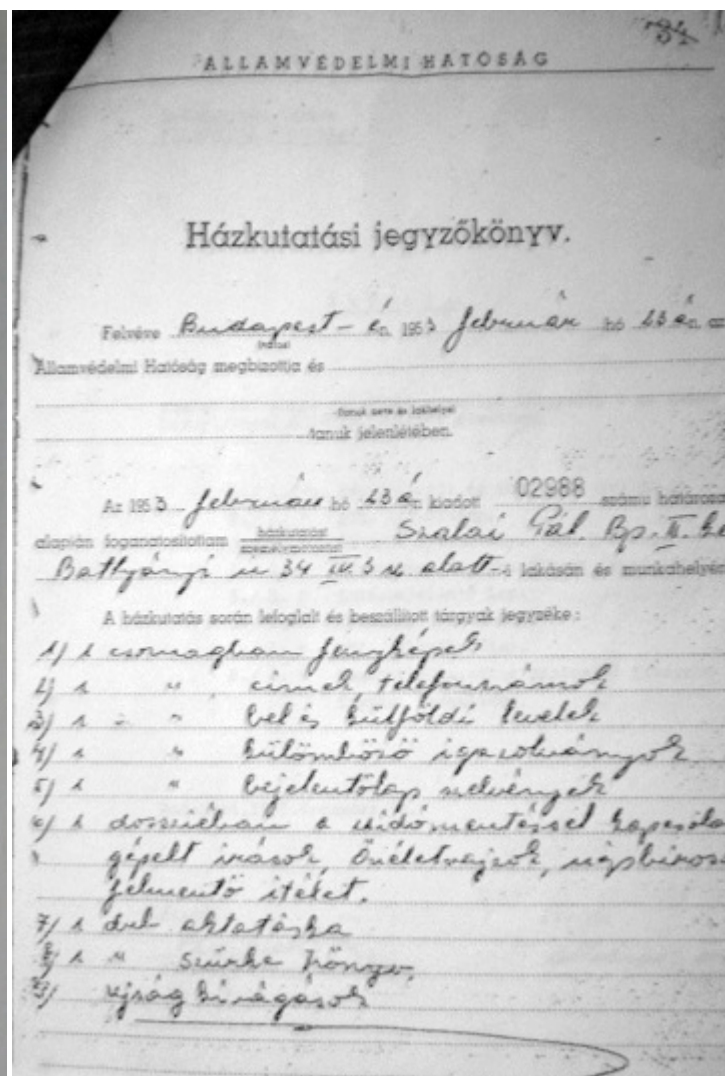 34
ÁLLAMVÉDELMI HATÓSÁG
Házkutatási jegyzőkönyv.
Felvéve Budapest - én 1953 február hó 23 án az
(város)
Államvédelmi Hatóság megbizottja és
tanuk neve és lakhelye
tanuk jelenlétében.
Az 1953 február hó 23 án kiadott 02988 számu
alapján foganatosítottam házkutatást Szalai Pál Bp. II.
személymotozást
Battyányi u 34 IV. 3 sz alatt -i lakásán és munkahelyén
A házkutatás során lefoglalt és beszállított tárgyak jegyzéke:
1/ 1 csomagban fényképek
2/ 1 " " cimek, telefonszámok
3/ 1 " " bel és külföldi levelek
4/ 1 " külömböző igazolványok
5/ 1 " bejelentőlap szelvények
6/ 1 dossziéban a zsidómentéssel
gépelt irások, önéletrajzok,
felmentő itélet.
7/ 1 drb aktatáska
8/ 1 " szürke könyv,
9/ ujság kivágások